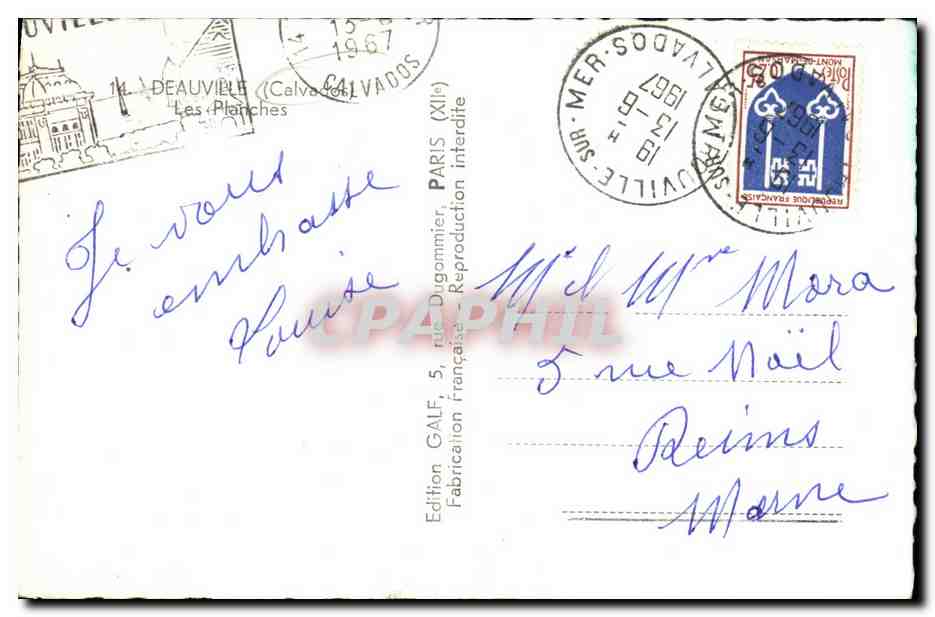 15-6
1967
CALVADOS
14. DEAUVILLE (Calvados)
Les Planches
Je vous
embrasse
Louise
Edition GALF, 5, rue Dugommier, PARIS (XIIe)
Fabrication Française - Reproduction interdite
SUR·MER·
19 H
13-6
1967
POSTES
MONT-DE-MARSAN
REPUBLIQUE FRANÇAISE
CPAPHIL
Mr et Mme Mora
5 rue Noël
Reims
Marne